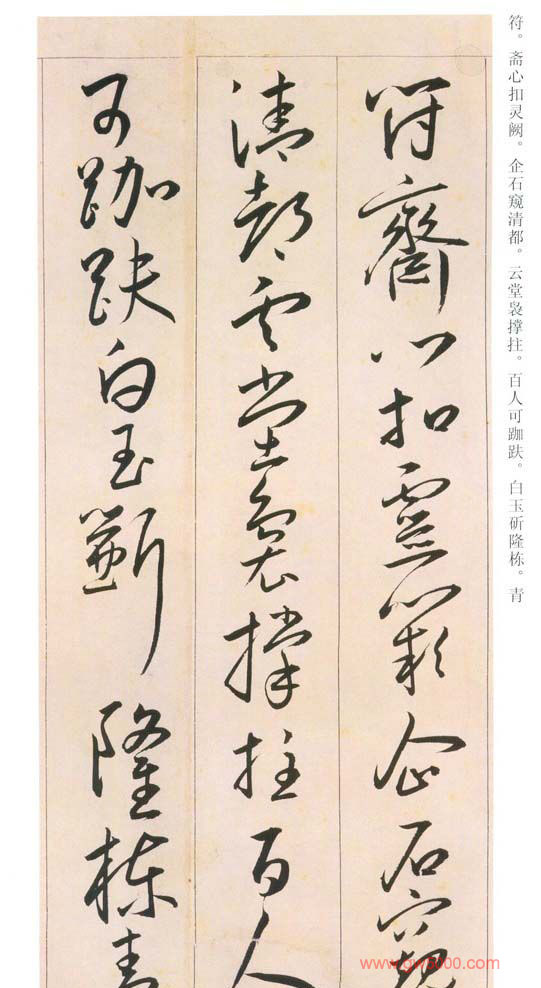 符齋心扣靈闕企石窺
清都雲堂裊撑拄百人
可跏趺白玉斲隆棟青
符。斋心扣灵阙。企石窥清都。云堂袅撑拄。百人可跏趺。白玉斫隆栋。青
www.gw5000.com